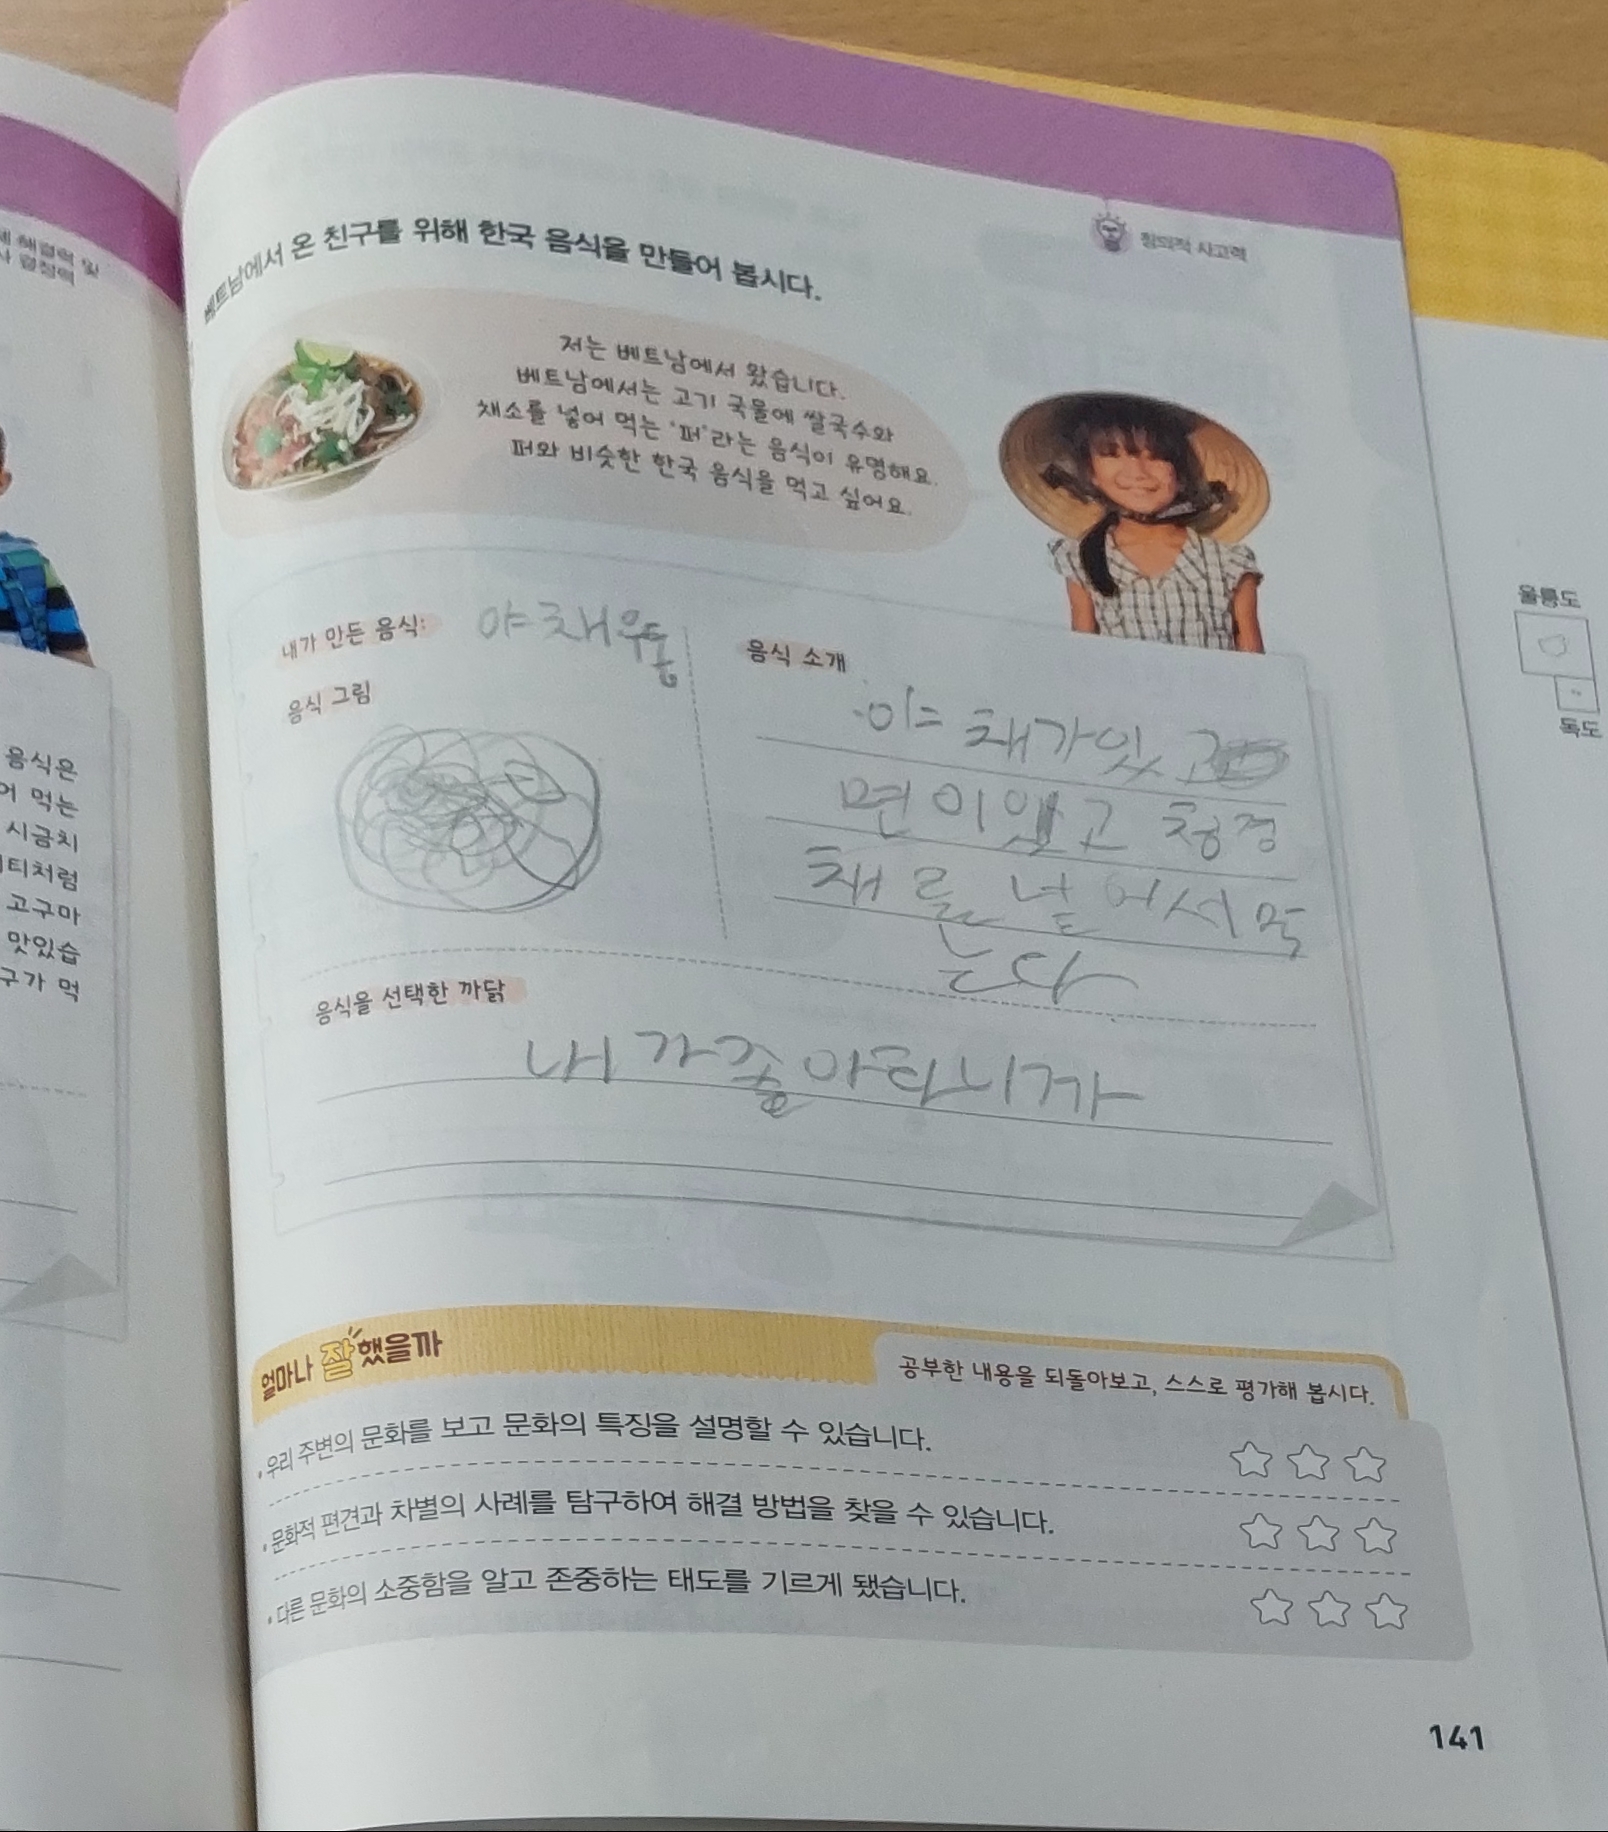 해결력 및
결정력
창의적 사고력
베트남에서 온 친구를 위해 한국 음식을 만들어 봅시다.
저는 베트남에서 왔습니다.
베트남에서는 고기 국물에 쌀국수와
채소를 넣어 먹는 '퍼'라는 음식이 유명해요.
퍼와 비슷한 한국 음식을 먹고 싶어요.
내가 만든 음식: 야채우동
음식 그림
음식 소개
야채가있고
면이있고 청경
채를 넣어서먹
는다
음식을 선택한 까닭
내가좋아하니까
음식은
어 먹는
시금치
티처럼
고구마
맛있습
구가 먹
울릉도
독도
얼마나 잘했을까
공부한 내용을 되돌아보고, 스스로 평가해 봅시다.
• 우리 주변의 문화를 보고 문화의 특징을 설명할 수 있습니다.
• 문화적 편견과 차별의 사례를 탐구하여 해결 방법을 찾을 수 있습니다.
• 다른 문화의 소중함을 알고 존중하는 태도를 기르게 됐습니다.
141